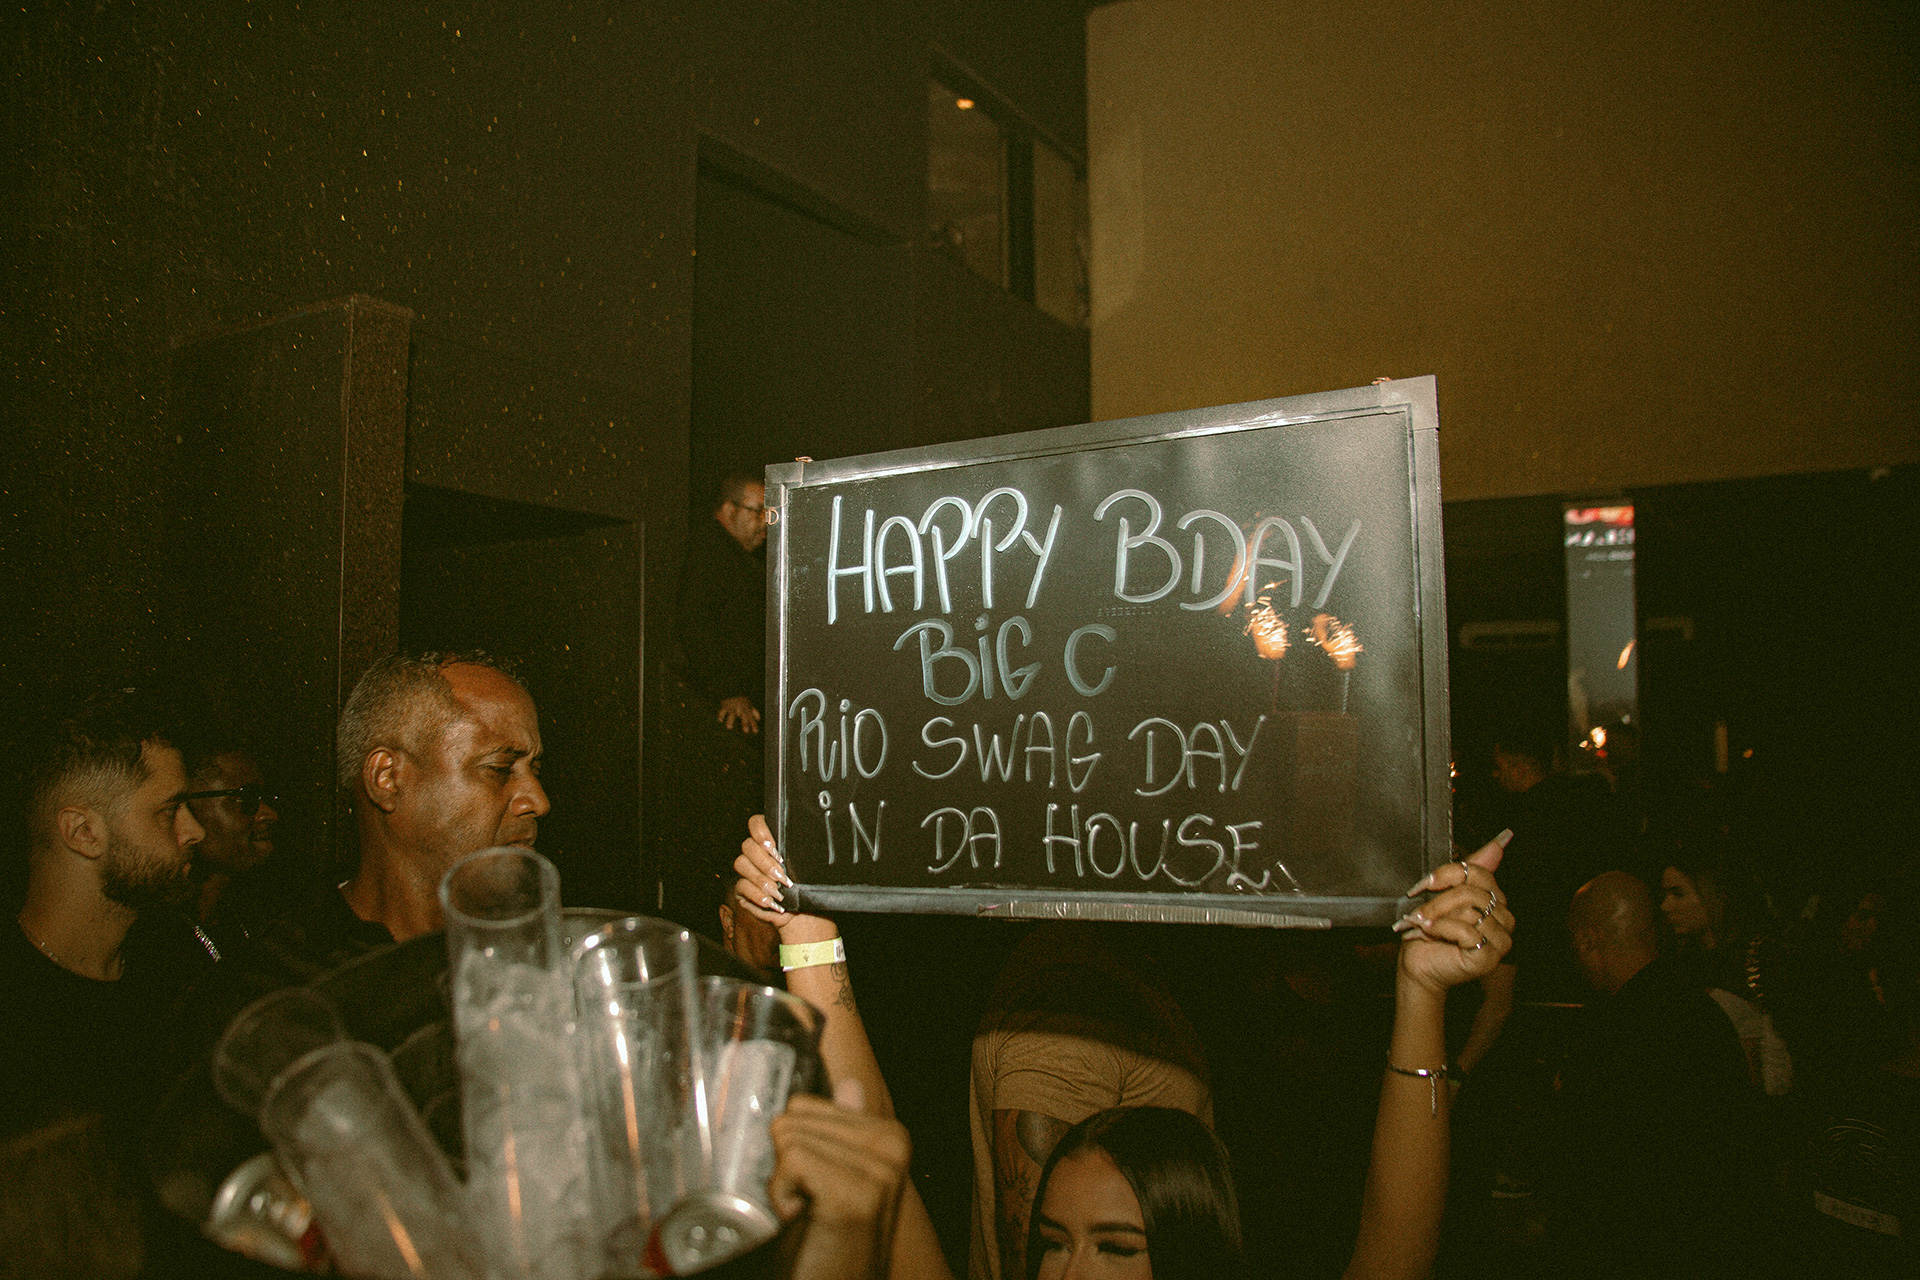 HAPPY BDAY
BiG C
RiO SWAG DAY
iN DA HOUSE